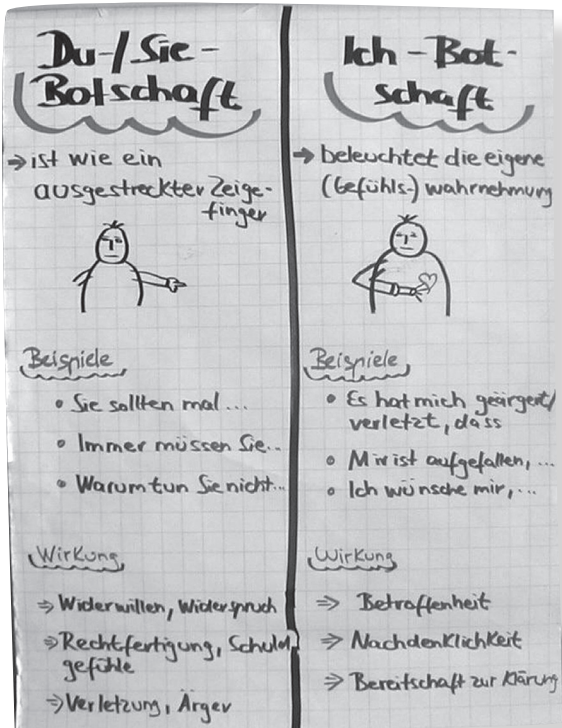 Du-/Sie-
Botschaft
→ ist wie ein
ausgestreckter Zeige-
finger
Beispiele
• Sie sollten mal...
• Immer müssen Sie...
• Warum tun Sie nicht...
Wirkung
⇒ Widerwillen, Widerspruch
⇒ Rechtfertigung, Schuld
gefühle
⇒ Verletzung, Ärger
Ich-Bot-
schaft
→ beleuchtet die eigene
(Gefühls-) wahrnehmung
Beispiele
• Es hat mich geärgert/
verletzt, dass
• Mir ist aufgefallen, ...
• Ich wünsche mir, ...
Wirkung
⇒ Betroffenheit
⇒ Nachdenklichkeit
⇒ Bereitschaft zur Klärung